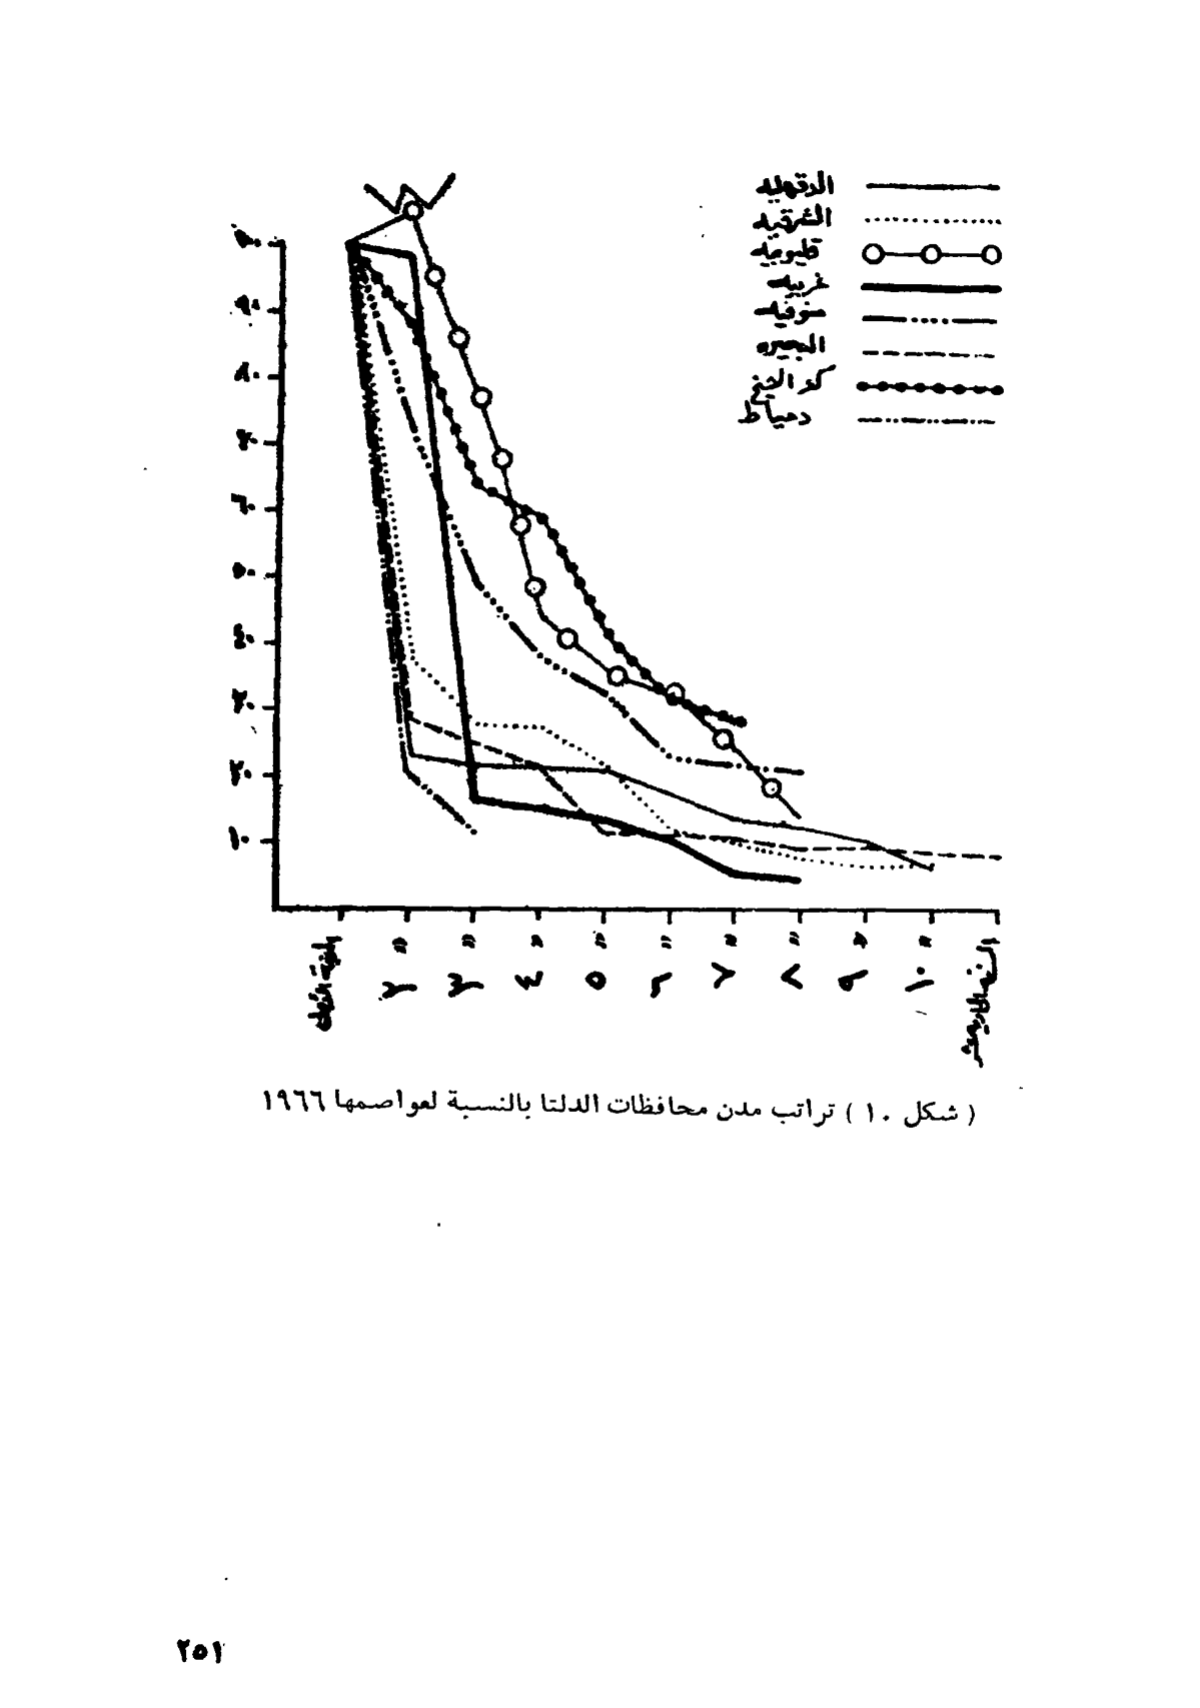 الدقهلية
الشرقية
قليوبية
غربية
منوفية
البحيرة
كفر الشيخ
دمياط
١٠٠
٩٠
٨٠
٧٠
٦٠
٥٠
٤٠
٣٠
٢٠
١٠
المدينة الأولى
٢ "
٣ "
٤ "
٥ "
٦ "
٧ "
٨ "
٩ "
١٠ "
( شكل ١٠ ) تراتب مدن محافظات الدلتا بالنسبة لعواصمها ١٩٦٦
٢٥١